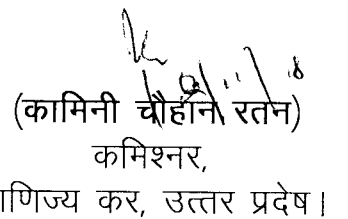 (कामिनी चौहान रतन)
कमिश्नर,
ाणिज्य कर, उत्तर प्रदेष।